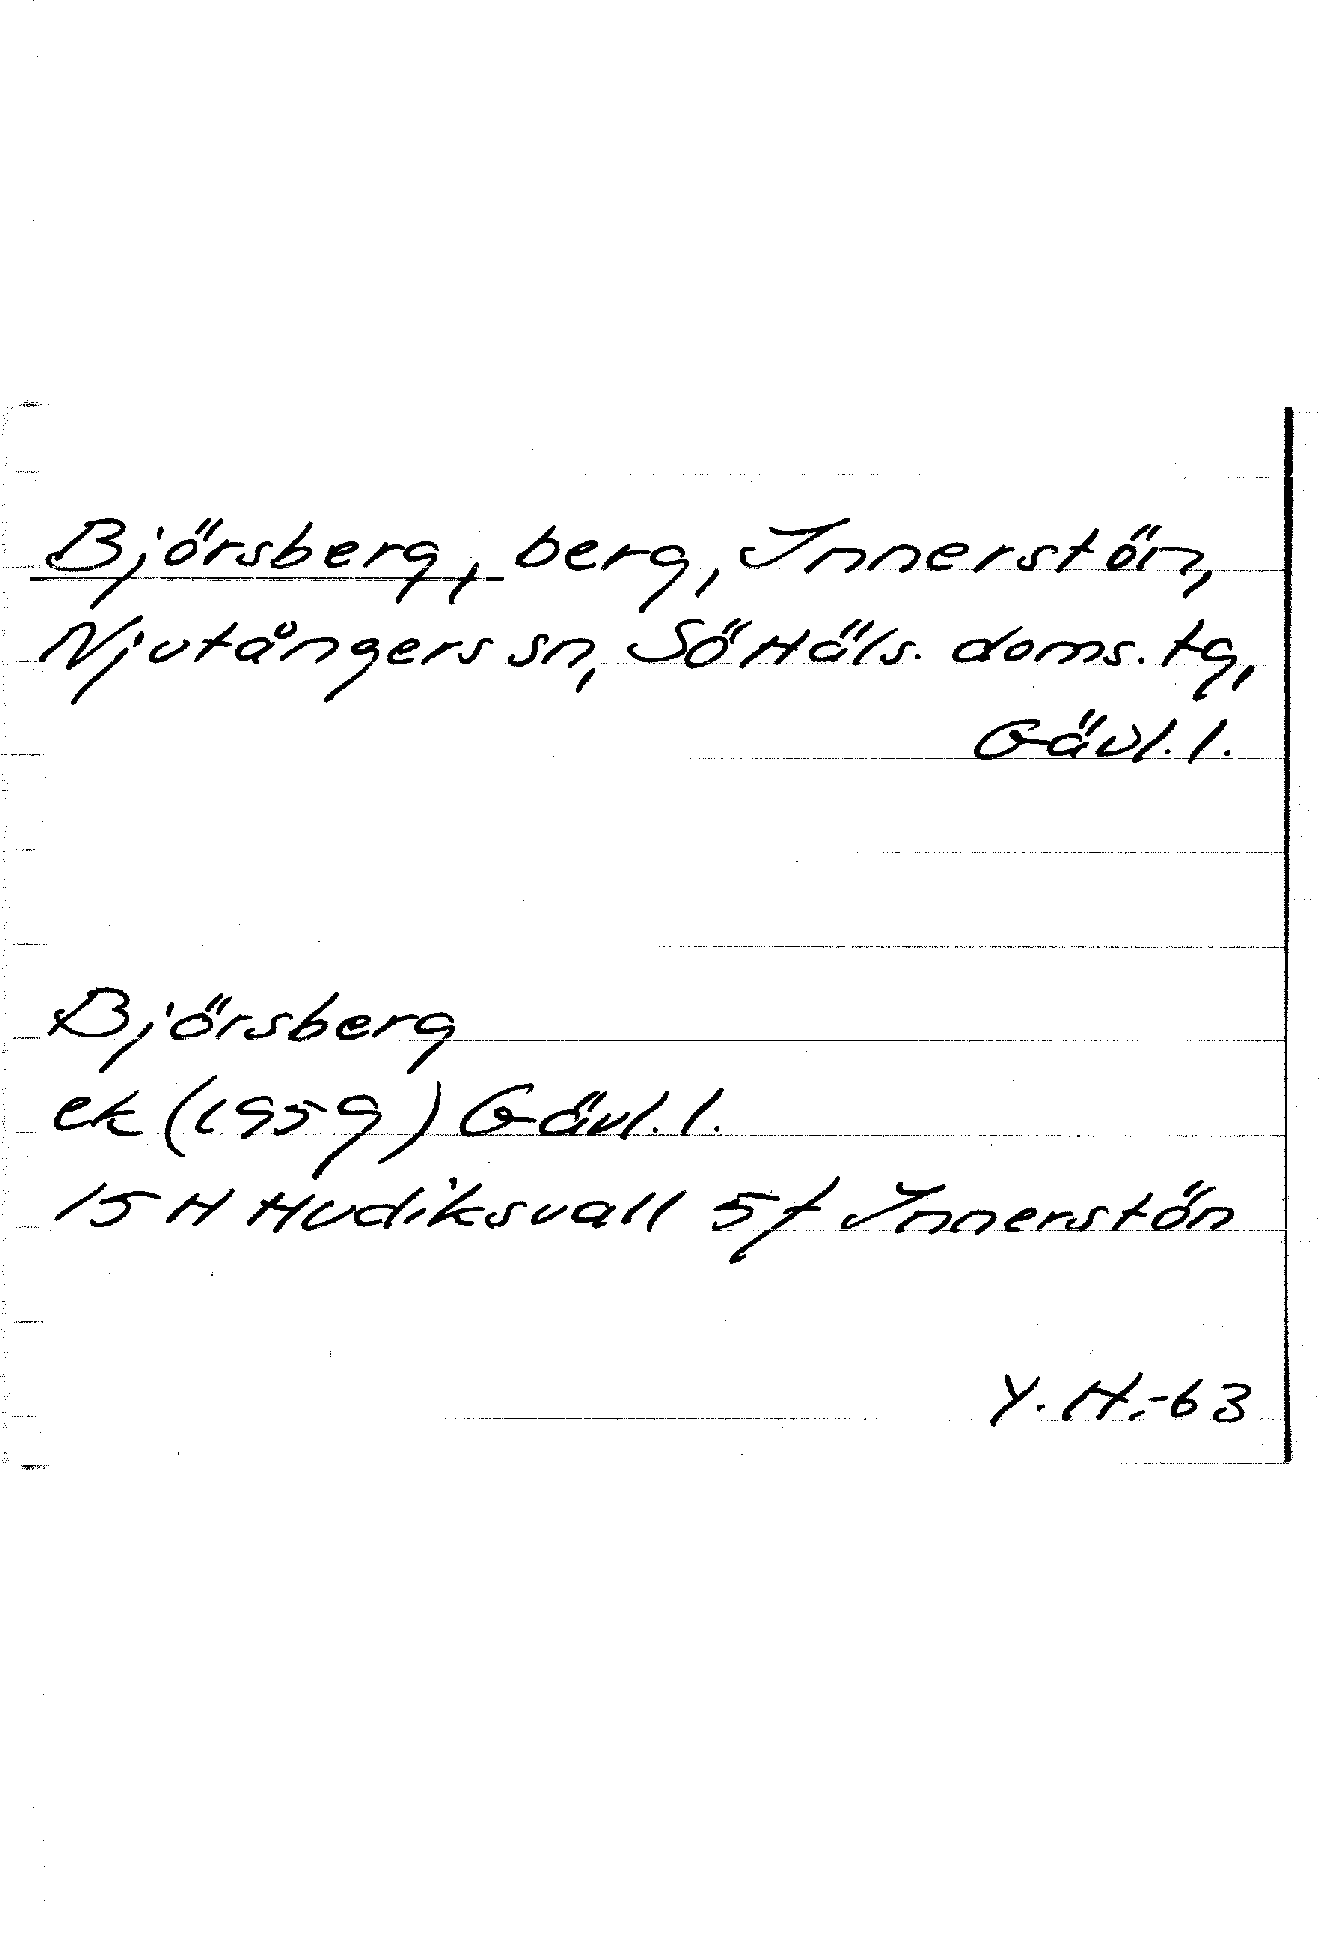 Björsberg, berg, Innerstön,
Njutångers sn, SöHäls. doms. tg,
Gävl. l.
Björsberg
ek (1959) Gävl. l.
15 H Hudiksvall 5f Innerstön
Y. H. -63